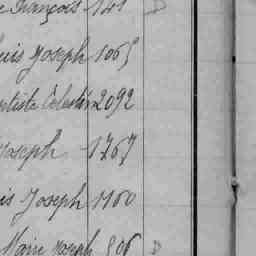 François 141
Louis Joseph 1065
Baptiste Célestin 2092
Joseph 1767
Louis Joseph 1160
Marie Joseph 506